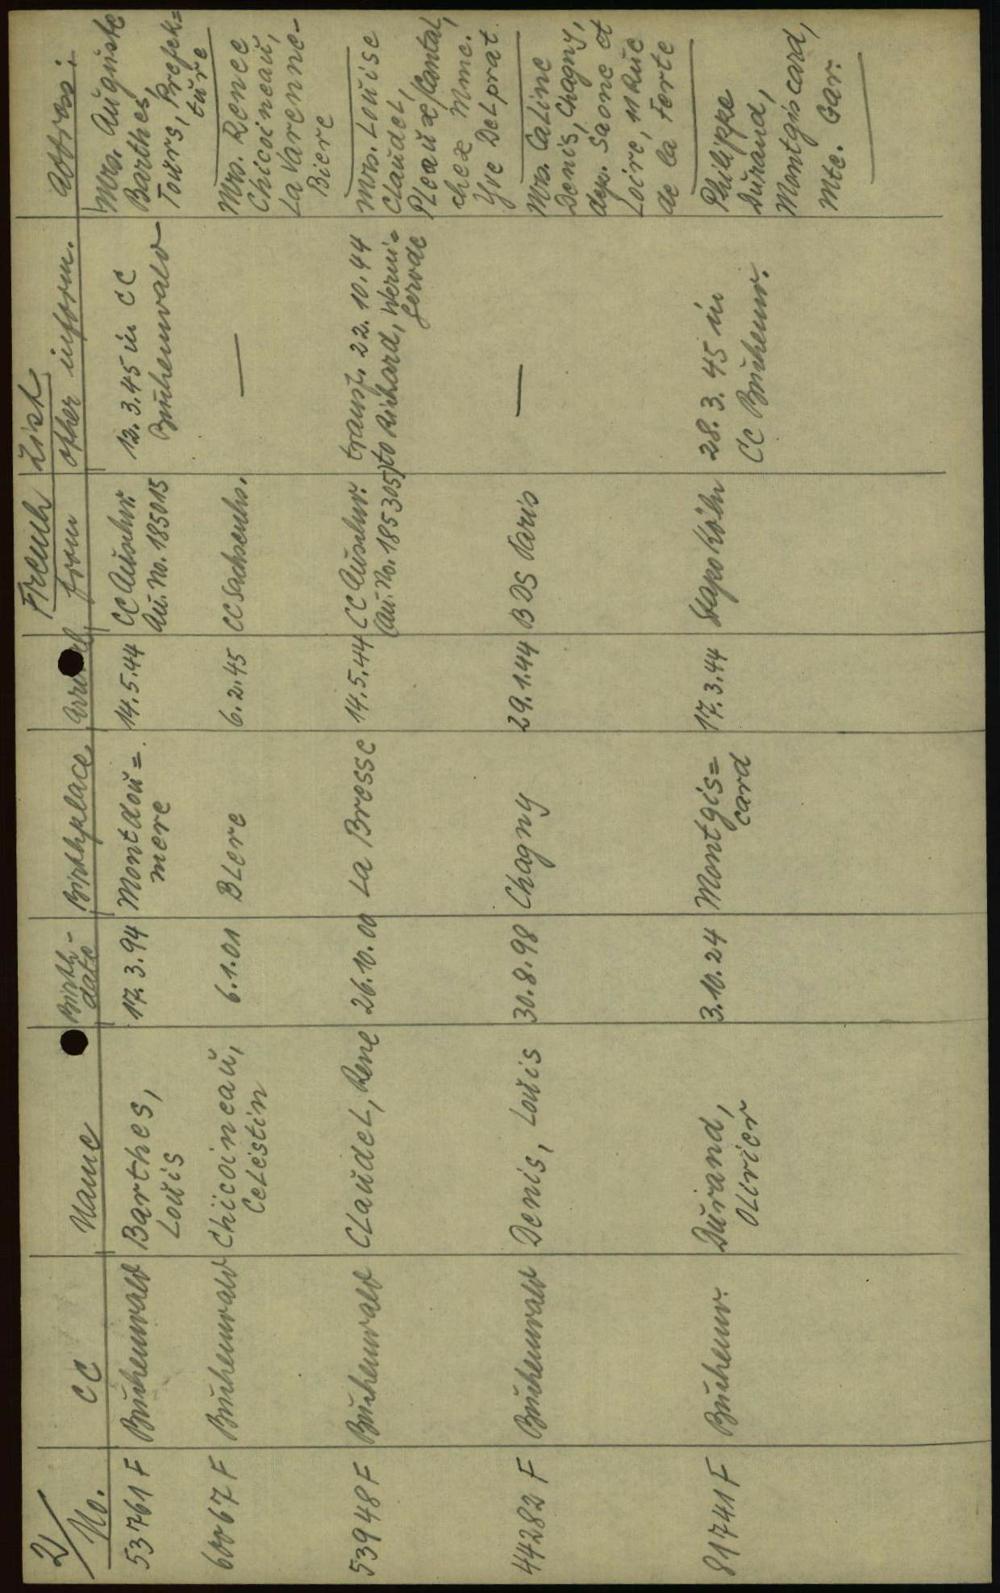 2/ French List
No. CC Name Birth-date Birthplace Arrival from other inform. Address:
53761 F Buchenwald Barthes, Louis 17.3.94 Montdou=mere 14.5.44 CC Auschw. Au. No. 185015 12.3.45 in CC Buchenwald Mrs. Auguste Barthes, Tours, Prefek=ture
F Buchenwald Chicoineau, Celestin 6.1.01 BLere 6.2.45 CC Sachsenhs. — Mrs. Renee Chicoineau, La Varenne-Biere
53948 F Buchenwald Claudel, Rene 26.10.00 La Bresse 14.5.44 CC Auschw. (Au. No. 185305) transf. 22.10.44 to Richard, Werni=gerode Mrs. Louise Claudel, Pleaux/Cantal, chez Mme. Yve Delprat
44282 F Buchenwald Denis, Louis 30.8.98 Chagny 29.1.44 BDS Paris — Mrs. Caline Denis, Chagny, dep. Saone et Loire, 11 Rue de la Ferte
81741 F Buchenw. Durand, Olivier 3.10.24 Montgis=card 17.3.44 Stapo Köln 28.3.45 in CC Buchenw. Philippe Durand, Montgiscard, Hte. Gar.